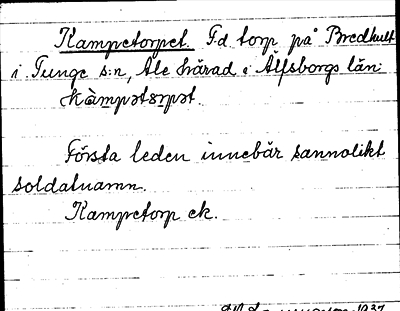 Kampetorpet. F.d. torp på Bredhult
i Tunge s:n, Ale härad i Älfsborgs län.
kàmpətsrpət.
Första leden innebär sannolikt
soldatnamn.
Kampetorp ek.
1937